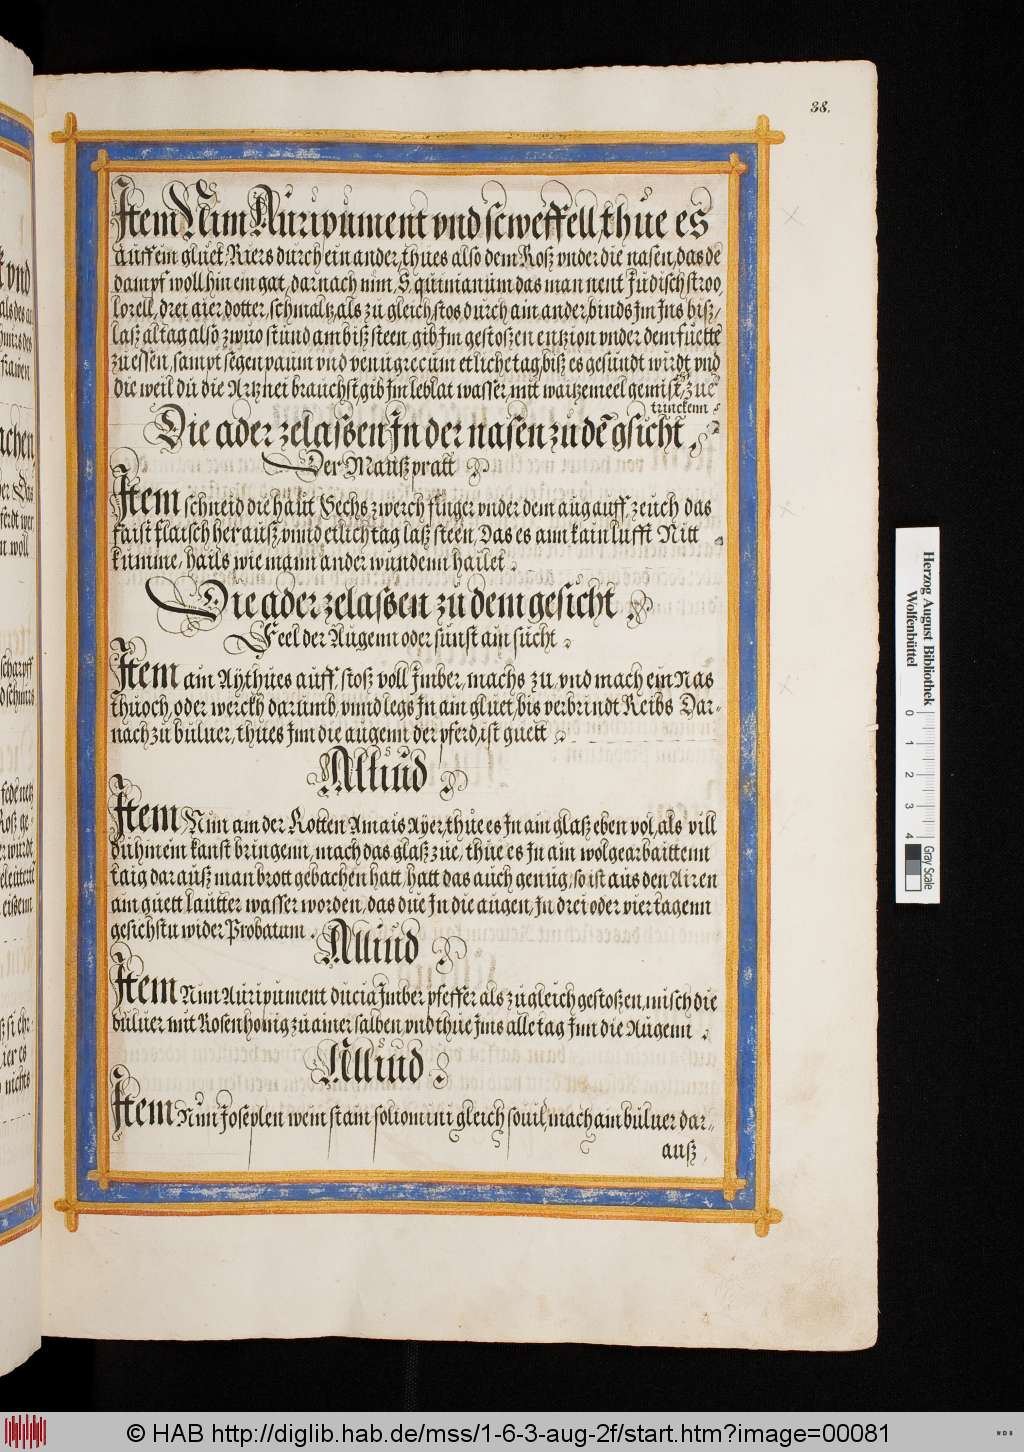 38.
Item Nim Auripument vnd seweffell, thue es
auff ein gluet, Riers durch ein ander, thues also dem Roß vnder die nasen, das de
dampf woll hin ein gat, darnach nim, S. quinianum das man nent Judisch stroo,
lorell, drei aier dotter, schmaltz, als zu gleich, stos durch ain ander, binds Im Ins biß,
laß al tag also zwuo stund am biß steen, gib Im gestoßen entzion vnder dem fuette
zu essen, sampt segenpaum vnd venugrecum etliche tag, biß es gesundt wirdt vnd
die weil du die Artznei brauchst, gib Im leblat wasser, mit waitzemeel gemist, zue
trinckenn
Die ader zelassen In der nasen zu de gsicht
Der Maußpratt
Item schneid die haut Sechs zwerch finger vnder dem aug auff, zeuch das
faist flaisch her auß, vnnd etlich tag laß steen, Das es ann kain lufft Nitt
kumme, hails wie mann ander wundenn hailet.
Die ader zelassen zu dem gesicht
Feel der Augenn oder sunst ain sucht
Item ain Aÿ thues auff, stoß voll Imber, machs zu, vnd mach ein Nas
thuoch, oder werckh darumb, vnnd legs In ain gluet, bis verbrindt Reibs Dar-
nach zu buluer, thues Inn die augenn der pferd, ist guett
Alliud
Item, Nim ain der Rotten Amais Aÿer, thue es In ain glaß eben vol, als vill
du hinein kanst bringenn, mach das glaß zue, thue es In ain wolgearbaittenn
taig dar auß man brott gebachen hatt, hatt das auch genug, so ist aus den Airen
ain guett lautter wasser worden, das due In die augen, In drei oder vier tagenn
gesichstu wider Probatum.
Alliud
Item Nim Auripument ducia Imber pfeffer als zu gleich gestoßen, misch die
buluer mit Rosenhonig zu ainer salben, vnd thue Ims alle tag Inn die Augenn
Alliud
Item Nim Josephen weinstain soliomini gleich souil, mach ain buluer dar-
auß
Herzog August Bibliothek
Wolfenbüttel
0 1 2 3 4
Gray Scale
© HAB http://diglib.hab.de/mss/1-6-3-aug-2f/start.htm?image=00081